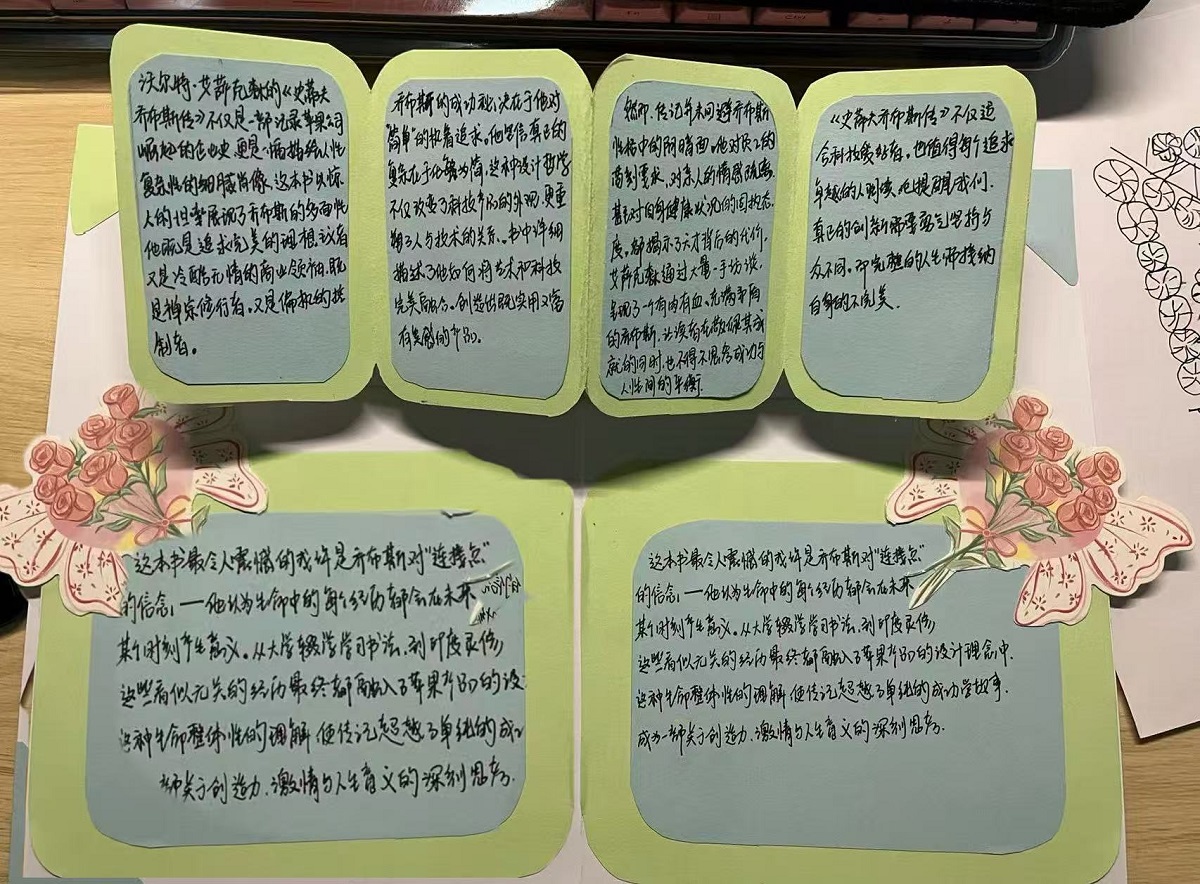 沃尔特·艾萨克森的《史蒂夫
乔布斯传》不仅是一部记录苹果公司
崛起的企业史,更是一幅描绘人性
复杂性的细腻肖像。这本书以惊
人的坦诚展现了乔布斯的多面性
他既是追求完美的理想主义者
又是冷酷无情的商业领袖,既
是禅宗修行者。又是偏执的控
制者。
乔布斯的成功秘诀在于他对
"简单"的执着追求。他坚信真正的
复杂在于化繁为简。这种设计哲学
不仅改变了科技产品的外观,更重
塑了人与技术的关系。书中详细
描述了他如何将艺术和科技
完美融合。创造出既实用又富
有美感的产品。
然而,传记并未回避乔布斯
性格中的阴暗面。他对员工的
苛刻要求,对亲人的情感疏离
甚至对自身健康状况的固执态
度,都揭示了天才背后的代价,
艾萨克森通过大量一手访谈,
呈现了一个有肉有血、充满矛盾
的乔布斯,让读者在敬佩其成
就的同时,也不得不思考成功与
人性间的平衡.
《史蒂夫乔布斯传》不仅适
合科技爱好者。也值得每个追求
卓越的人阅读,它提醒我们,
真正的创新需要勇气坚持与
众不同。而完整的人生需接纳
自身的不完美.
这本书最令人震撼的或许是乔布斯对"连接点"
的信念,一他认为生命中的每个经历都会在未来
某个时刻产生意义。从大学辍学学习书法、到印度灵修,
这些看似无关的经历最终都融入了苹果产品的设
这种生命整体性的理解 使传记超越了单纯的成
部关于创造力、激情与人生意义的深刻思考.
这本书最令人震撼的或许是乔布斯对"连接点"
的信念,一他认为生命中的每个经历都会在未来
某个时刻产生意义。从大学辍学学习书法、到印度灵修,
这些看似无关的经历最终都融入了苹果产品的设计理念中.
这种生命整体性的理解 使传记超越了单纯的成功学故事.
成为一部关于创造力、激情与人生意义的深刻思考.